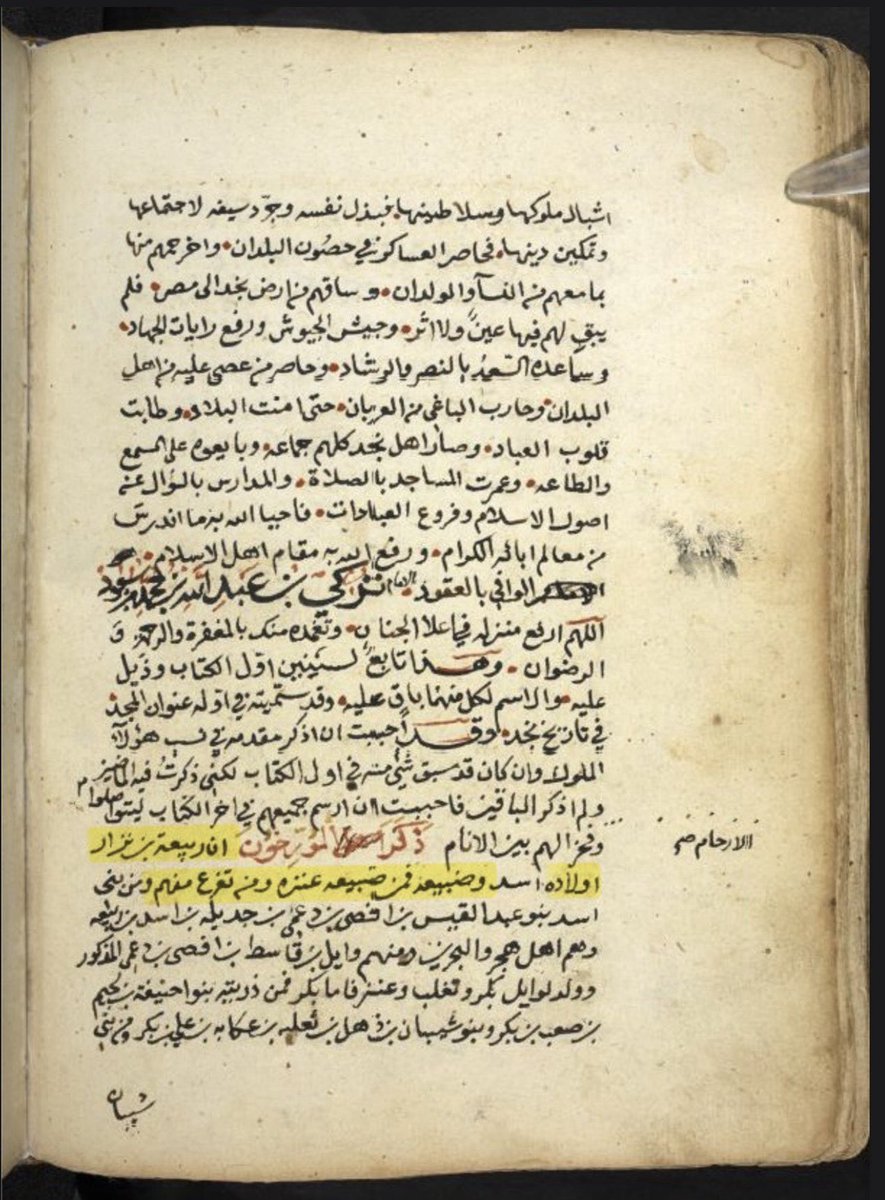 اشبال ملوكها وسلاطينها فبذل نفسه وجرد سيفه لاجتماعها
وتمكين دينها فحاصر العساكر في حصون البلدان واخرجهم منها
بما معهم من النسآ والولدان وساقهم من ارض نجد الى مصر فلم
يبق لهم فيها عين ولا اثر وجيش الجيوش ورفع رايات الجهاد
وساعده السعد بالنصر والرشاد وحاصر من عصى عليه من اهل
البلدان وحارب الباغي من العربان حتى امنت البلاد وطابت
قلوب العباد وصار اهل نجد كلهم جماعه وبايعوه على السمع
والطاعه وعمرت المساجد بالصلاة والمدارس بالسؤال عن
اصول الاسلام وفروع العبادات فاحيا الله به ما اندرس
من معالم ابائه الكرام ورفع الله به مقام اهل الاسلام
الوافي بالعقود الامام تركي بن عبد الله بن محمد بن سعود
اللهم ارفع منزله في اعلا الجنان وتغمده منك بالمغفرة والرحمة و
الرضوان وهذا تابع لسنين اول الكتاب وذيل
عليه والاسم لكل منهما باق عليه وقد سميته في اوله عنوان المجد
في تاريخ نجد وقد احببت ان اذكر مقدمه في نسب هؤلآء
الملوك وان كان قد سبق شئ منه في اول الكتاب لكني ذكرت فيه الماضين
ولم اذكر الباقين فاحببت ان ارسم جميعهم في اخر الكتاب ليتواصلوا
وفخرا لهم بين الانام ذكر المؤرخون ان ربيعة بن نزار
الارحام صح
اولاده اسد وضبيعه فمن ضبيعه عنزه ومن تفرع منهم ومن بني
اسد بنو عبد القيس بن افصى بن دعمي بن جديله بن اسد بن ربيعه
وهم اهل هجر والبحرين ومنهم وايل بن قاسط بن افصى بن دعمي المذكور
وولد لوايل بكر وتغلب وعنز فاما بكر فمن ذريته بنوا حنيفة بن لجيم
بن صعب بن بكر وبنو شيبان بن ذهل بن ثعلبه بن عكابه بن علي بن بكر ومن بني
شيبان